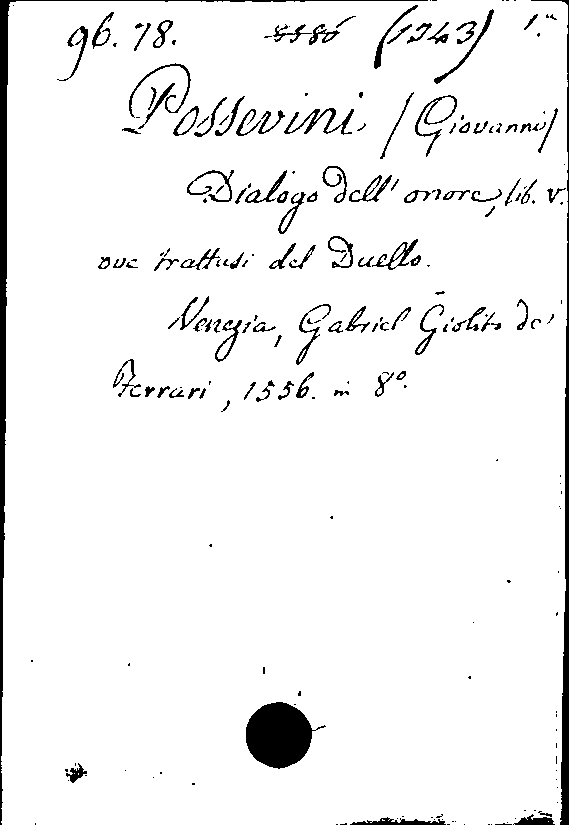 96. 78. 8586 (1243) 1.
Possevini (Giovanni)
Dialogo dell' onore, lib. V.
ove trattasi del Duello.
Venezia, Gabriel Giolito de'
Ferrari, 1556. in 8º.